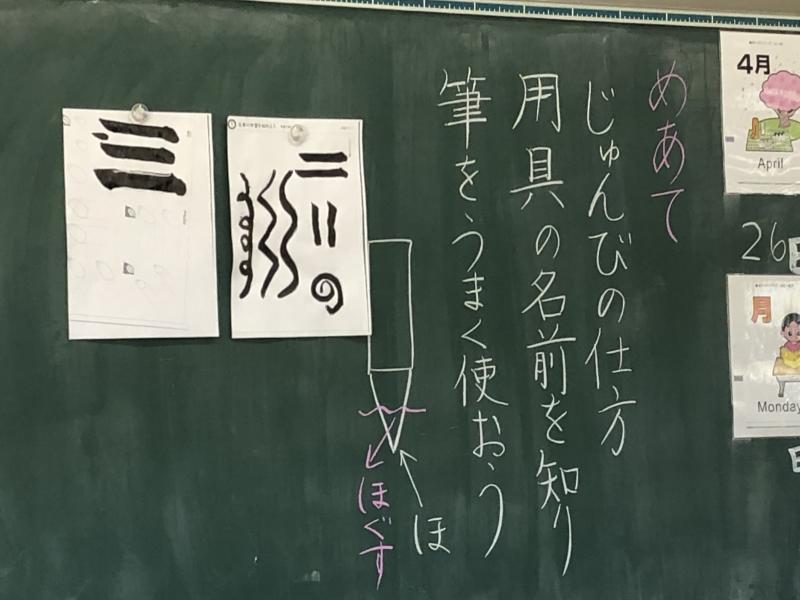 めあて
じゅんびの仕方
用具の名前を知り
筆をうまく使おう
ほ
ほぐす
4月
April
26
月
Monday